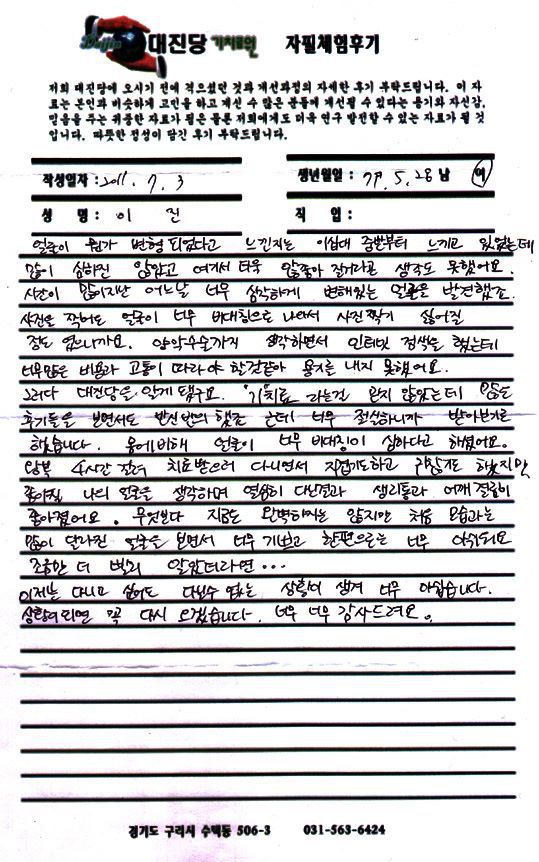 Daijin 대진당 기치료원 자필체험후기
저희 대진당에 오시기 전에 격으셨던 것과 개선과정의 자세한 후기 부탁드립니다. 이 자
료는 본인과 비슷하게 고민을 하고 계신 수 많은 분들께 개선될 수 있다는 용기와 자신감,
믿음을 주는 귀중한 자료가 됨은 물론 저희에게도 더욱 연구 발전할 수 있는 자료가 될 것
입니다. 따뜻한 정성이 담긴 후기 부탁드립니다.
작성일자 : 2011. 7. 3 생년월일 : 77. 5. 28 남 여
성 명 : 이 진 직 업 :
얼굴이 뭔가 변형 되었다고 느낀지는 이십대 중반부터 느끼고 있었는데
많이 심하진 않았고 여기서 더욱 안좋아 질거라곤 생각도 못했어요.
시간이 많이지난 어느날 너무 심각하게 변해있는 얼굴을 발견했죠.
사진을 찍어도 얼굴이 너무 비대칭으로 나와서 사진찍기 싫어질
정도 였으니까요. 양악수술까지 생각하면서 인터넷 검색을 했는데
너무많은 비용과 고통이 따라야 할것같아 용기를 내지 못했어요.
그러다 대진당을 알게 됐구요. "기"치료 라는걸 믿지 않았는데 많은
후기들을 보면서도 반신반의 했죠 근데 너무 절실하니까 받아보기로
했습니다. 몸에비해 얼굴이 너무 비대칭이 심하다고 하셨어요.
왕복 4시간 걸려 치료받으러 다니면서 지겹기도하고 귀찮기도 했지만
좋아질 나의 얼굴을 생각하며 열심히 다닌결과 생리통과 어깨 결림이
좋아졌어요. 무엇보다 지금도 완벽하지는 않지만 처음 모습과는
많이 달라진 얼굴을 보면서 너무 기쁘고 한편으로는 너무 아쉬워요
조금만 더 빨리 알았더라면...
이제는 다니고 싶어도 다닐수 없는 상황이 생겨 너무 아쉽습니다.
상황이되면 꼭 다시 오겠습니다. 너무 너무 감사드려요.
경기도 구리시 수택동 506-3 031-563-6424